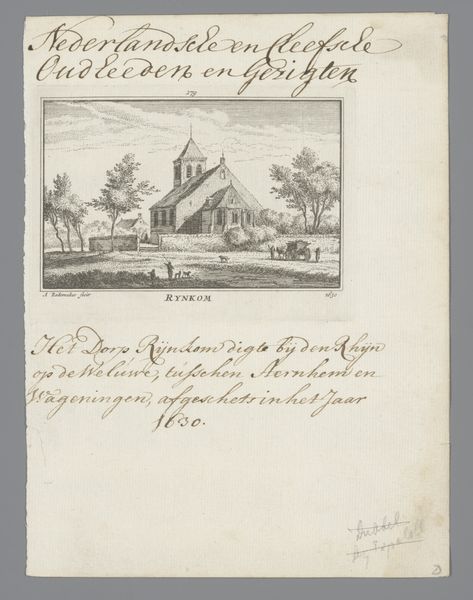 Nederlandsche en Cleefsche
Oudheeden en Gezigten
279
A Rademaker fecit
RYNKOM
1630
Het Dorp Rijnkom digte bij den Rhijn
op de Weluwe, tusschen Aernhem en
Wageningen, afgeschets in het Jaar
1630.
Dubbel